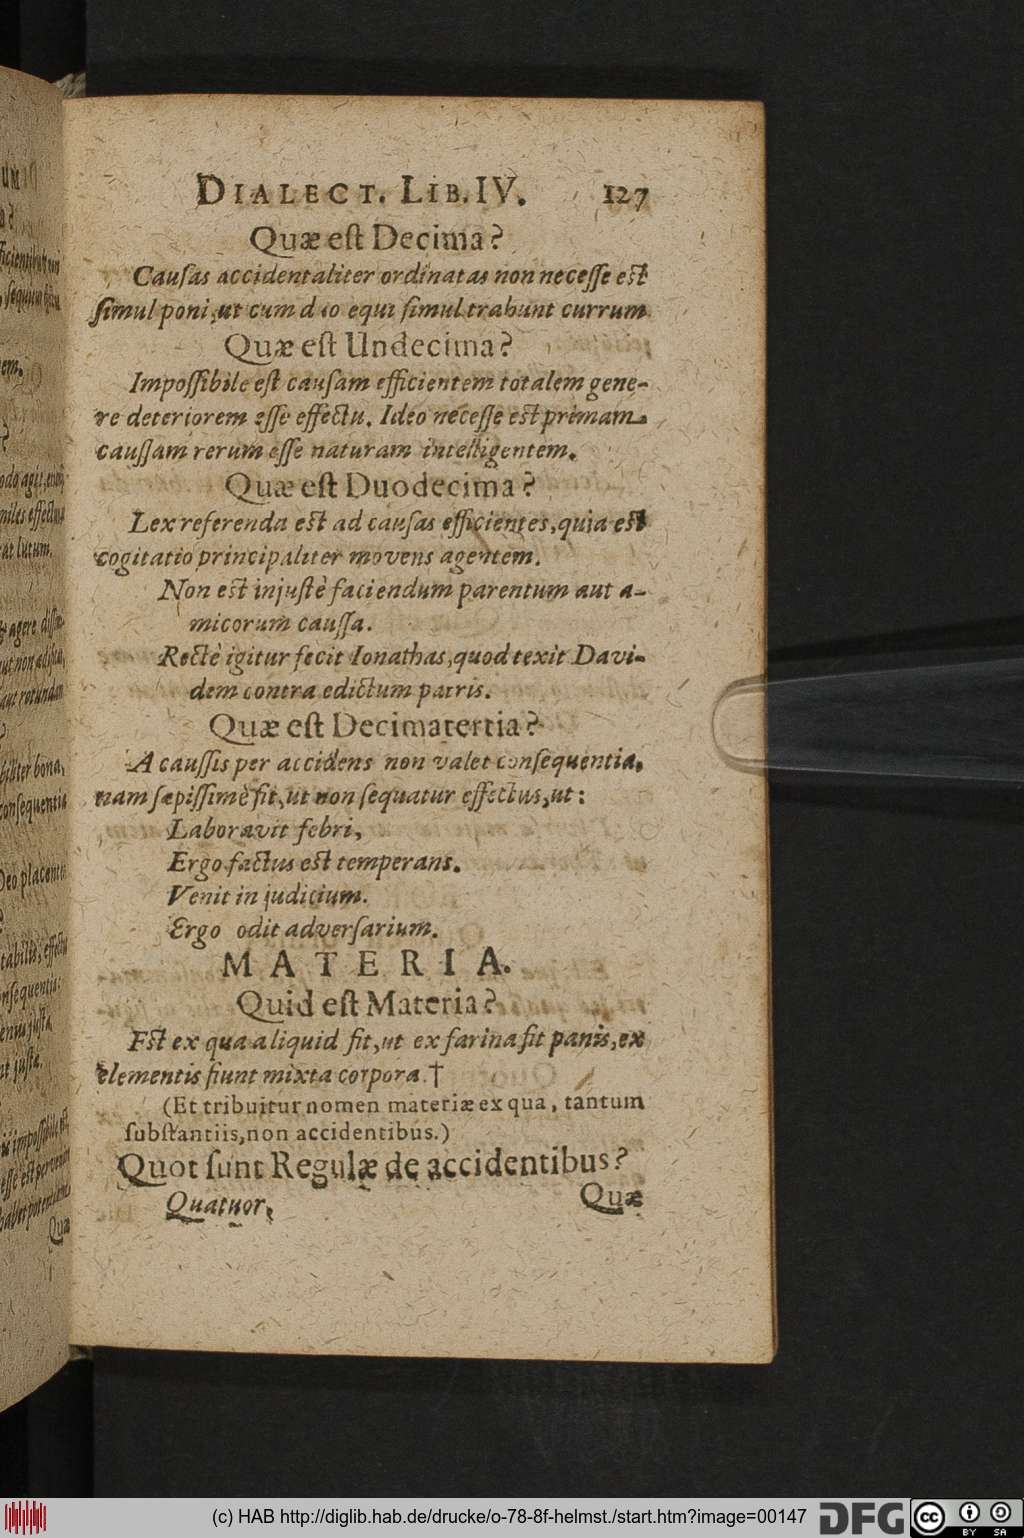 DIALECT. LIB. IV. 127
Quæ est Decima?
Causas accidentaliter ordinatas non necesse est
simul poni, ut cum duo equi simul trahunt currum.
Quæ est Undecima?
Impossibile est causam efficientem totalem gene-
re deteriorem esse effectu. Ideo necesse est primam
caussam rerum esse naturam intelligentem.
Quæ est Duodecima?
Lex referenda est ad causas efficientes, quia est
cogitatio principaliter movens agentem.
Non est injustè faciendum parentum aut a-
micorum caussa.
Rectè igitur fecit Ionathas, quod texit Davi-
dem contra edictum patris.
Quæ est Decimatertia?
A caussis per accidens non valet consequentia,
nam sæpissimè fit, ut non sequatur effectus, ut:
Laboravit febri,
Ergo factus est temperans.
Venit in judicium.
Ergo odit adversarium.
MATERIA.
Quid est Materia?
Est ex qua aliquid fit, ut ex farina fit panis, ex
elementis fiunt mixta corpora †
(Et tribuitur nomen materiæ ex qua, tantum
substantiis, non accidentibus.)
Quot sunt Regulæ de accidentibus?
Quatuor.
Quæ
(c) HAB http://diglib.hab.de/drucke/o-78-8f-helmst./start.htm?image=00147
DFG
cc BY SA